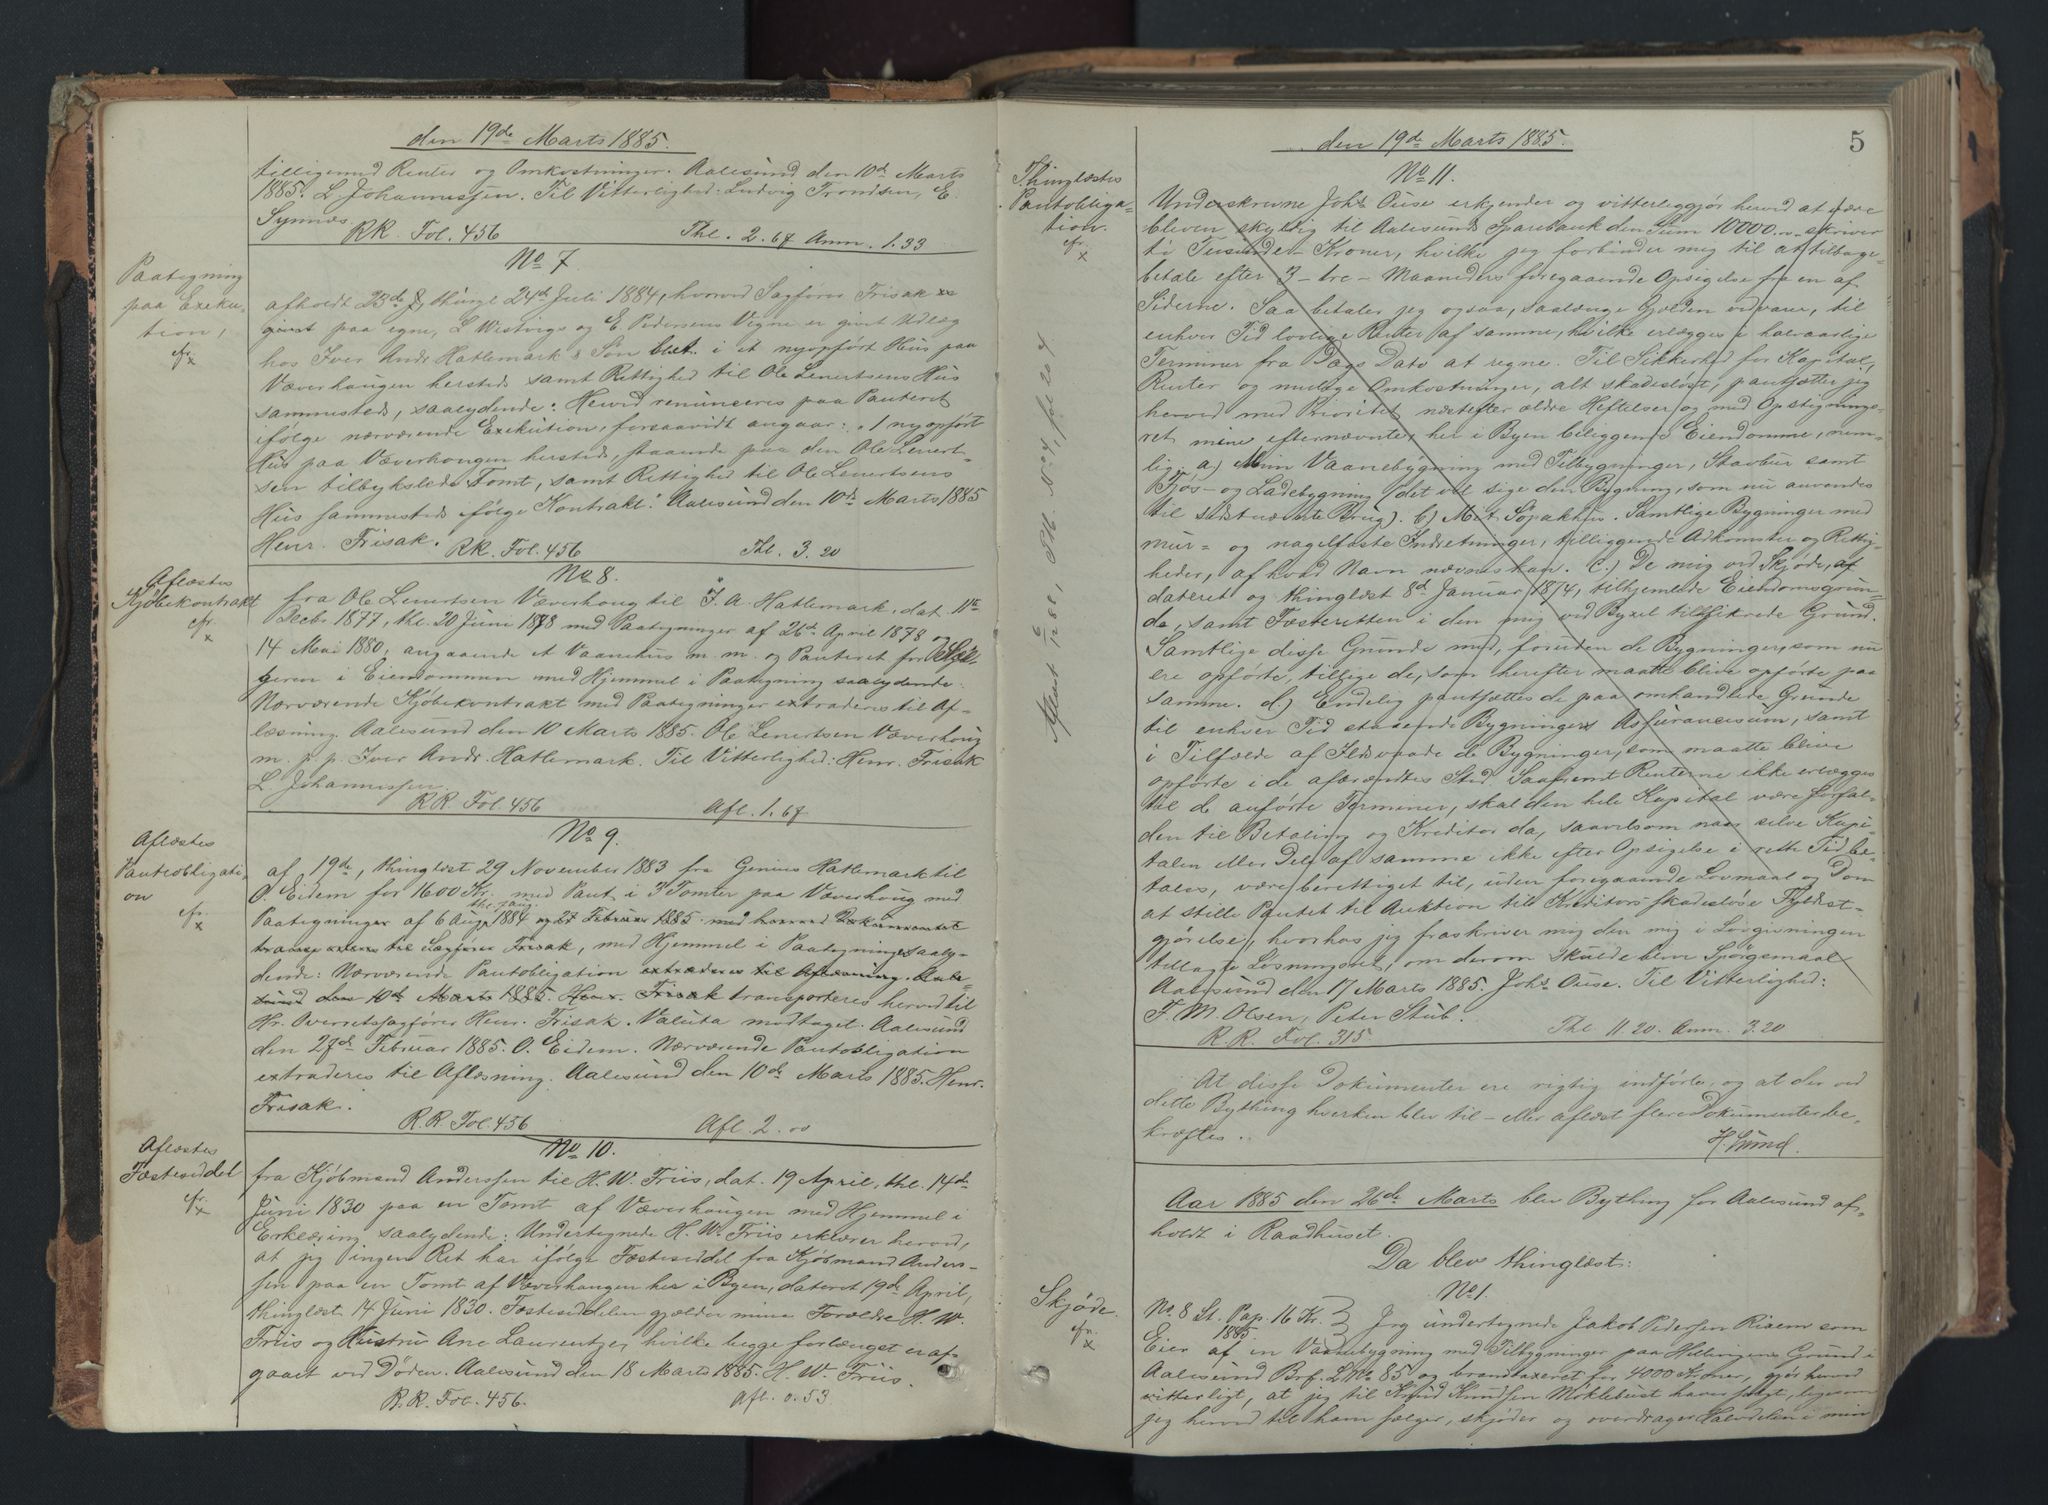 den 19de Marts 1885.
tilligemed Renter og Omkostninger. Aalesund den 10de Marts
1885. L Johannessen. Til Vitterlighed: Ludvig Trondsen, E.
Synnæs.
RR. Fol. 456 Thl. 2.67 Anm. 1.33
No 7.
Paategning
paa Exeku-
tion,
cfr.
x
afholdt 23de thingl 24de Juli 1884, hvorved Sagfører Frisak
paa egne, L Westvigs og E. Pedersens Vegne er givet Udlæg
hos Iver Andr Hatlemark & Søn blat. i et nyopført Hus paa
Væverhaugen hersteds samt Rettighed til Ole Lenertsens Hus
sammesteds, saalydende: Herved renunceres paa Panteret
ifølge nærværende Exekution, forsaavidt angaar: "1 nyopført
Hus paa Væverhougen hersteds, staaende paa den Ole Lenert-
sen tilbykslede Tomt, samt Rettighed til Ole Lenertsens
Hus sammesteds ifølge Kontrakt." Aalesund den 10de Marts 1885
Henr. Frisak.
RR. Fol. 456 Thl. 3.20
No 8.
Aflæstes
Kjøbekontrakt
cfr.
x
fra Ole Lenertsen Væverhoug til I. A. Hatlemark, dat. 11te
Decbr 1877, thl. 20 Juni 1878 med Paategninger af 26de April 1878 og
14 Mai 1880, angaaende et Vaanehus m. m. og Panteret for Sæl-
geren i Eiendommen med Hjemmel i Paategning saalydende:
Nærværende Kjøbekontrakt med Paategninger extraderes til Af-
læsning. Aalesund den 10 Marts 1885. Ole Lenertsen Væverhoug
m. p. p. Iver Andr. Hatlemark. Til Vitterlighed: Henr. Frisak
L Johannessen.
RR Fol. 456 Afl. 1.67
No 9.
Aflæstes
Panteobligati-
on
cfr.
x
af 19de, thinglæst 29 November 1883 fra Genius Hatlemark til
O. Eidem for 1600 Kr. med Pant i 3 Tomter paa Væverhoug med
Paategninger af 6 Aug 1884 og 27 Februar 1885. med
til Sagfører Frisak, med Hjemmel i Paategning saaly-
dende: Nærværende Pantobligation extraderes til Aflæsning. Aale-
sund den 10de Marts 1885. Henr. Frisak transporteres herved til
Hr. Overretssagfører Henr. Frisak. Valuta modtaget. Aalesund
den 27de Februar 1885. O. Eidem. Nærværende Pantobligation
extraderes til Aflæsning. Aalesund den 10de Marts 1885. Henr.
Frisak.
R.R Fol. 456 Afl. 2.00
No 10.
Aflæstes
Fæsteseddel
cfr.
x
fra Kjøbmand Anderssen til H. W. Friis, dat. 19 April, thl. 14de
Juni 1830 paa en Tomt af Væverhaugen med Hjemmel i
Erklæring saalydende: Undertegnede H. W. Friis erklærer herved,
at jeg ingen Ret har ifølge Fæsteseddel fra Kjøbmand Anders-
sen paa en Tomt af Væverhaugen her i Byen, dateret 19de April,
thinglæst 14 Juni 1830. Fæsteseddelen gjælder mine Forældre H. W.
Friis og Hustru Ane Laurentze, hvilke begge forlænget er af-
gaaet ved Døden. Aalesund den 18 Marts 1885. H. W. Friis.
R.R. Fol. 456. Afl. 0.53
5
den 19de Marts 1885.
No 11.
Thinglæstes
Pantobliga-
tion.
cfr.
x
Underskrevne Johs. Ouse erkjender og vitterliggjør herved at være
bleven skyldig til Aalesunds Sparebank den Sum 10000.00 skriver
ti Tusunde Kroner, hvilke jeg forbinder mig til at tilbage-
betale efter 3 - tre - Maaneders foregaaende Opsigelse fra en af
Siderne. Saa betaler jeg ogsaa, saalænge Gjælden vedvarer, til
enhver Tid lovlige Renter af samme, hvilke erlægges i halvaarlige
Terminer fra Dags Dato at regne. Til Sikkerhed for Kapital,
Renter og mulige Omkostninger, alt skadesløst, pantsætter jeg
herved med Prioritet næstefter ældre Heftelser og med Opstignings-
ret mine efternævnte, her i Byen beliggende Eiendomme, nem-
lig a.) Min Vaanebygning med Tilbygninger, Stavbur samt
Fjøs- og Ladebygning (det vil sige den Bygning, som nu anvendes
til sidstnævnte Brug). b.) Mit Søpakhus. Samtlige Bygninger med
mur- og nagelfaste Indretninger, tilliggende Adkomster og Rettig-
heder, af hvad Navn nævnes kan. c.) De mig ved Skjøde, af
dateret og thinglæst 8de Januar 1874, tilhjemlede Eiendomsgrun-
de, samt Fæsteretten i den mig ved Byxel tilsikrede Grund.
Samtlige disse Grunde med, foruden de Bygninger, som nu
ere opførte, tillige de, som herefter maatte blive opførte paa
samme. d.) Endelig pantsættes de paa omhandlede Grunde
til enhver Tid staaende Bygningers Assurancesum, samt
i Tilfælde af Ildsvaade de Bygninger, som maatte blive
opførte i de afbrændtes Sted. Saafremt Renterne ikke erlægges
til de anførte Terminer, skal den hele Kapital være forfal-
den til Betaling og Kreditor da, saavelsom naar selve Kapi-
talen eller Dele af samme ikke efter Opsigelse i rette Tid be-
tales, være berettiget til, uden foregaaende Lovmaal og Dom
at stille Pantet til Auktion til Kreditors skadesløse Fyldest-
gjørelse, hvorhos jeg fraskriver mig den mig i Lovgivningen
tillagte Løsningsret, om derom skulde blive Spørgsmaal.
Aalesund den 17 Marts 1885. Johs. Ouse. Til Vitterlighed:
F. M. Olsen, Peter Stub.
R.R. Fol. 315 Thl 11.20. Anm. 3.20
At disse Dokumenter ere rigtig indførte, og at der ved
dette Bything hverken blev til- eller aflæst flere Dokumenter be-
kræftes.
H Lund.
Aar 1885 den 26de Marts blev Bything for Aalesund af-
holdt i Raadhuset.
Da blev thinglæst:
No 1.
Skjøde.
cfr.
x
No 8 St. Pap. 16 Kr.
1885.
Jeg undertegnede Jakob Pedersen Rixem som
Eier af en Vaanebygning med Tilbygninger paa Hellingens Grund i
Aalesund Brf. L. No 85 og brandtaxeret for 4000 Kroner, gjør herved
vitterligt, at jeg til Knud Knudsen Møklebust haver solgt, ligesom
jeg herved til ham sælger, skjøder og overdrager Halvdelen i min